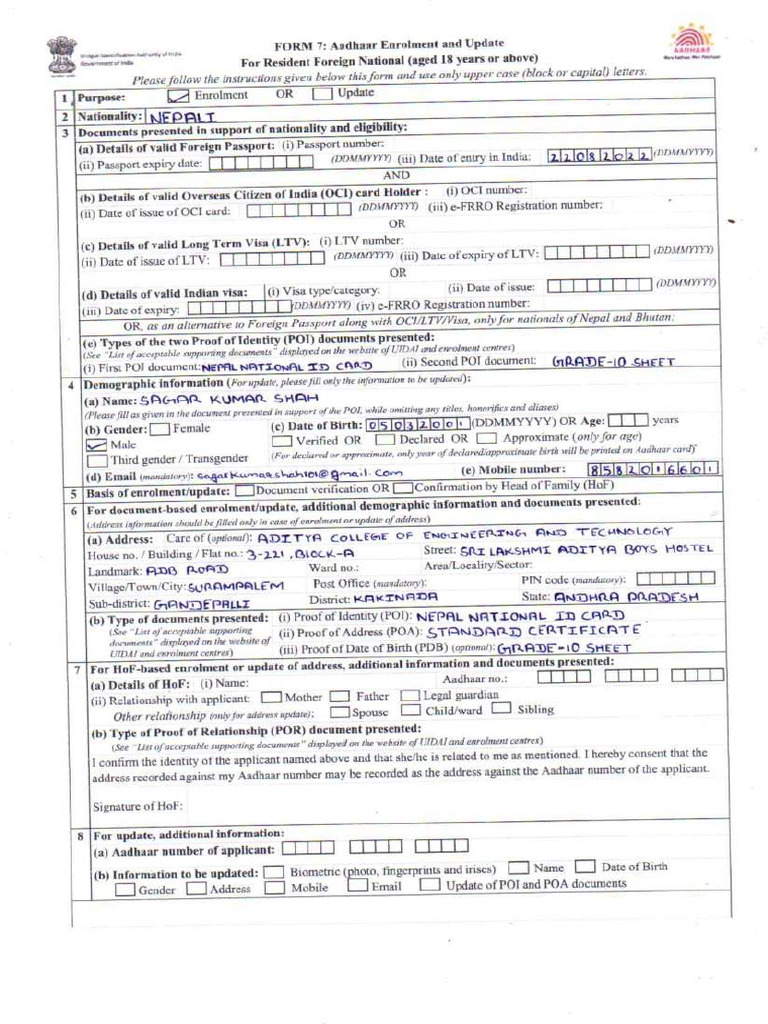 Unique Identification Authority of India
Government of India
FORM 7: Aadhaar Enrolment and Update
For Resident Foreign National (aged 18 years or above)
AADHAAR
Please follow the instructions given below this form and use only upper case (block or capital) letters.
1 Purpose: Enrolment OR Update
2 Nationality: NEPALI
3 Documents presented in support of nationality and eligibility:
(a) Details of valid Foreign Passport: (i) Passport number:
(ii) Passport expiry date: (DDMMYYYY) (iii) Date of entry in India: 22082022 (DDMMYYYY)
AND
(b) Details of valid Overseas Citizen of India (OCI) card Holder : (i) OCI number:
(ii) Date of issue of OCI card: (DDMMYYYY) (iii) e-FRRO Registration number:
OR
(c) Details of valid Long Term Visa (LTV): (i) LTV number:
(ii) Date of issue of LTV: (DDMMYYYY) (iii) Date of expiry of LTV: (DDMMYYYY)
OR
(d) Details of valid Indian visa: (i) Visa type/category: (ii) Date of issue: (DDMMYYYY)
(iii) Date of expiry: (DDMMYYYY) (iv) e-FRRO Registration number:
OR, as an alternative to Foreign Passport along with OCI/LTV/Visa, only for nationals of Nepal and Bhutan:
(e) Types of the two Proof of Identity (POI) documents presented:
(See "List of acceptable supporting documents" displayed on the website of UIDAI and enrolment centres)
(i) First POI document: NEPAL NATIONAL ID CARD (ii) Second POI document: GRADE-10 SHEET
4 Demographic information (For update, please fill only the information to be updated):
(a) Name: SAGAR KUMAR SHAH
(Please fill as given in the document presented in support of the POI, while omitting any titles, honorifics and aliases)
(b) Gender: Female (c) Date of Birth: 05032001 (DDMMYYYY) OR Age: years
Male Verified OR Declared OR Approximate (only for age)
Third gender / Transgender (For declared or approximate, only year of declared/approximate birth will be printed on Aadhaar card)
(d) Email (mandatory): sagarkumarshah101@gmail.com (e) Mobile number: 8582016601
5 Basis of enrolment/update: Document verification OR Confirmation by Head of Family (HoF)
6 For document-based enrolment/update, additional demographic information and documents presented:
(Address information should be filled only in case of enrolment or update of address)
(a) Address: Care of (optional): ADITYA COLLEGE OF ENGINEERING AND TECHNOLOGY
House no. / Building / Flat no.: 3-221, BLOCK-A Street: SRI LAKSHMI ADITYA BOYS HOSTEL
Landmark: ADB ROAD Ward no.: Area/Locality/Sector:
Village/Town/City: SURAMPALEM Post Office (mandatory): PIN code (mandatory):
Sub-district: GANDEPALLI District: KAKINADA State: ANDHRA PRADESH
(b) Type of documents presented: (i) Proof of Identity (POI): NEPAL NATIONAL ID CARD
(See "List of acceptable supporting documents" displayed on the website of UIDAI and enrolment centres) (ii) Proof of Address (POA): STANDARD CERTIFICATE
(iii) Proof of Date of Birth (PDB) (optional): GRADE-10 SHEET
7 For HoF-based enrolment or update of address, additional information and documents presented:
(a) Details of HoF: (i) Name: Aadhaar no.:
(ii) Relationship with applicant: Mother Father Legal guardian
Other relationship (only for address update): Spouse Child/ward Sibling
(b) Type of Proof of Relationship (POR) document presented:
(See "List of acceptable supporting documents" displayed on the website of UIDAI and enrolment centres)
I confirm the identity of the applicant named above and that she/he is related to me as mentioned. I hereby consent that the
address recorded against my Aadhaar number may be recorded as the address against the Aadhaar number of the applicant.
Signature of HoF:
8 For update, additional information:
(a) Aadhaar number of applicant:
(b) Information to be updated: Biometric (photo, fingerprints and irises) Name Date of Birth
Gender Address Mobile Email Update of POI and POA documents